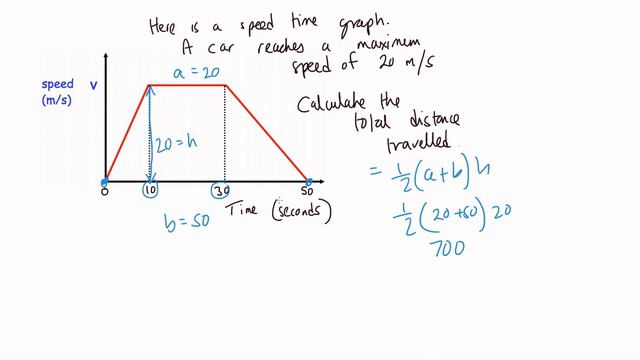 Here is a speed time graph.
A car reaches a maximum
speed of 20 m/s
a = 20
speed v
(m/s)
Calculate the
total distance
travelled
20 = h
= 1/2 (a+b) h
0 10 30 50
Time (seconds)
b = 50
1/2 (20+50) 20
700